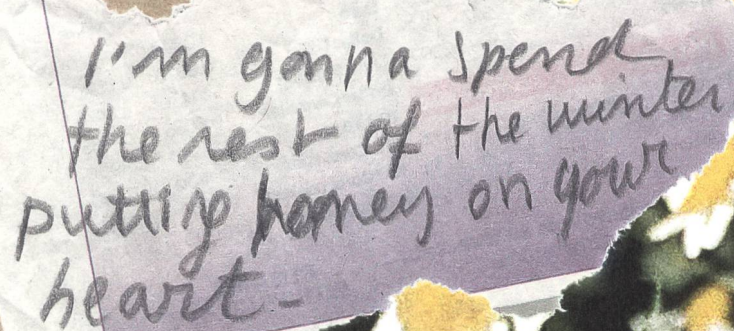 I'm gonna spend
the rest of the winter
putting honey on your
heart-